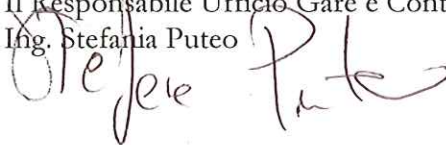 Il Responsabile Ufficio Gare e Cont
Ing. Stefania Puteo
Stefania Puteo